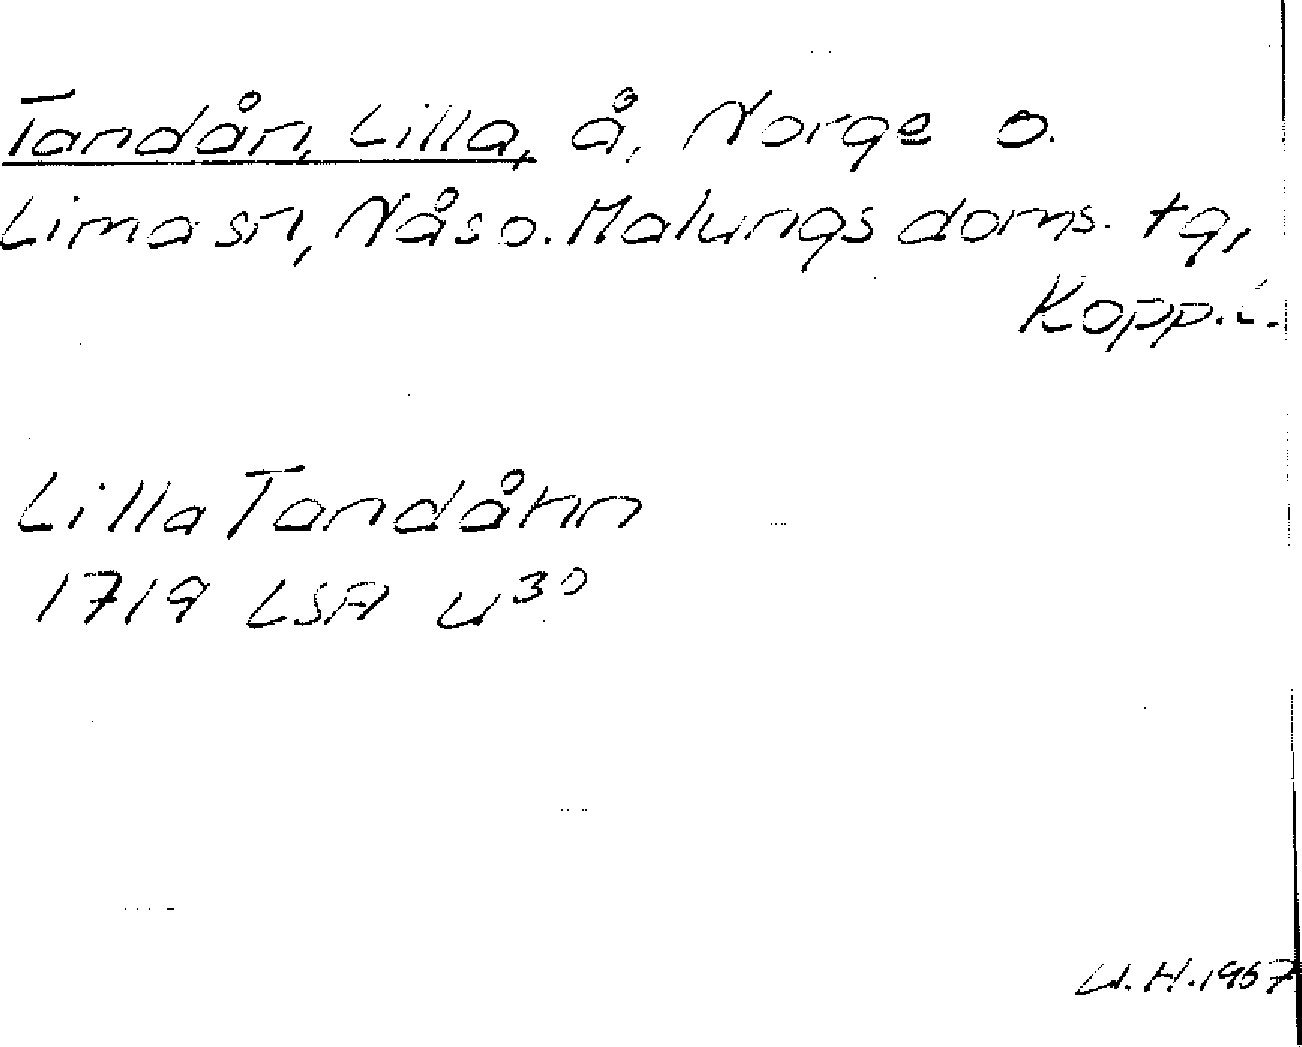 Tandån, Lilla, å, Norge o.
Lima sn, Nås o. Malungs doms. tg,
Kopp. l.
Lilla Tandåhn
1719 LSA U³⁰
U.H. 1967